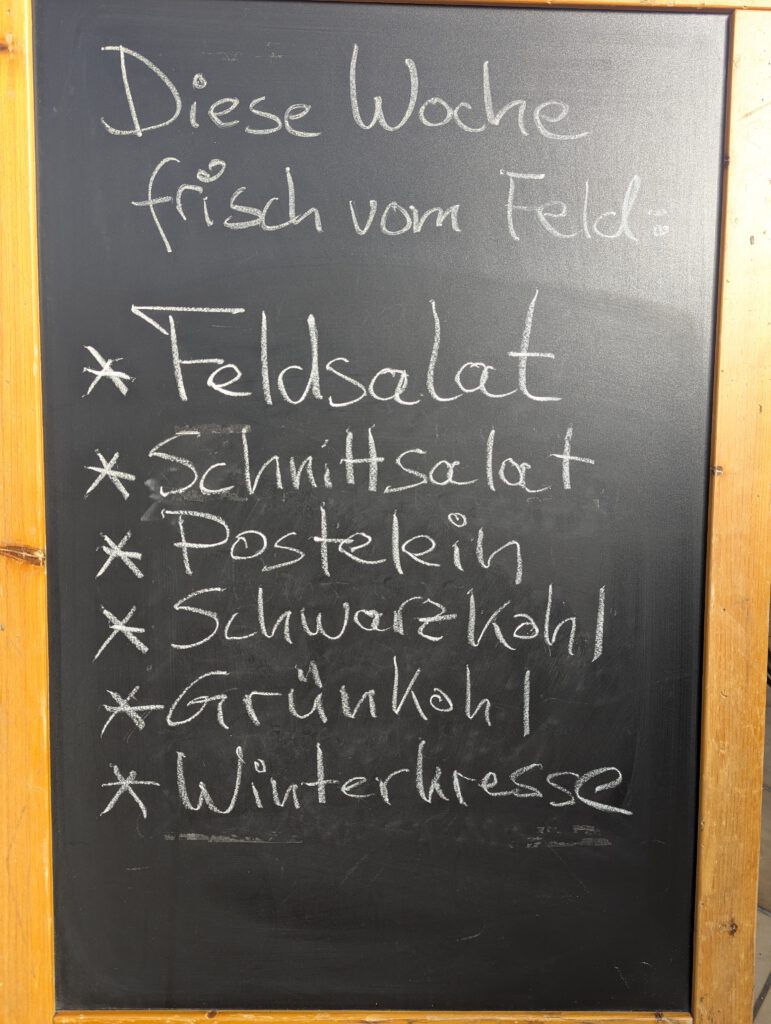 Diese Woche
frisch vom Feld:
* Feldsalat
* Schnittsalat
* Postelein
* Schwarzkohl
* Grünkohl
* Winterkresse